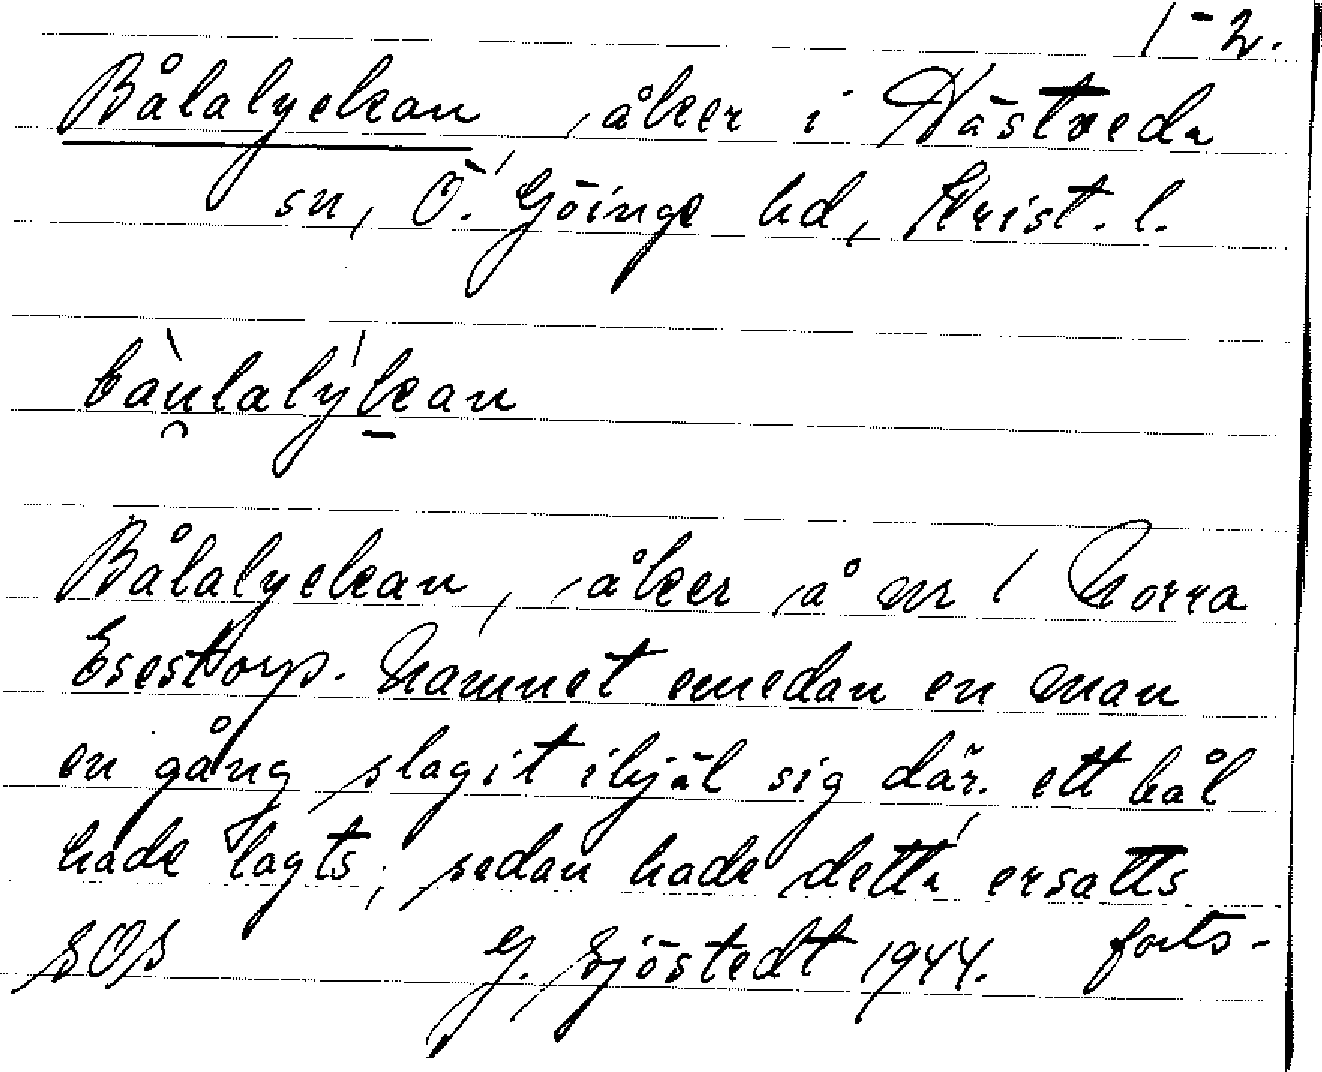 1-2.
Bålalyckan, åker i Hästveda
sn, Ö. Göinge hd, Krist. l.
bàu̯lalýk̠an
Bålalyckan, åker å nr 1 Norra
Esestorp. Namnet emedan en man
en gång slagit ihjäl sig där. ett bål
hade lagts; sedan hade detta ersatts
SOS G. Sjöstedt 1944. forts-